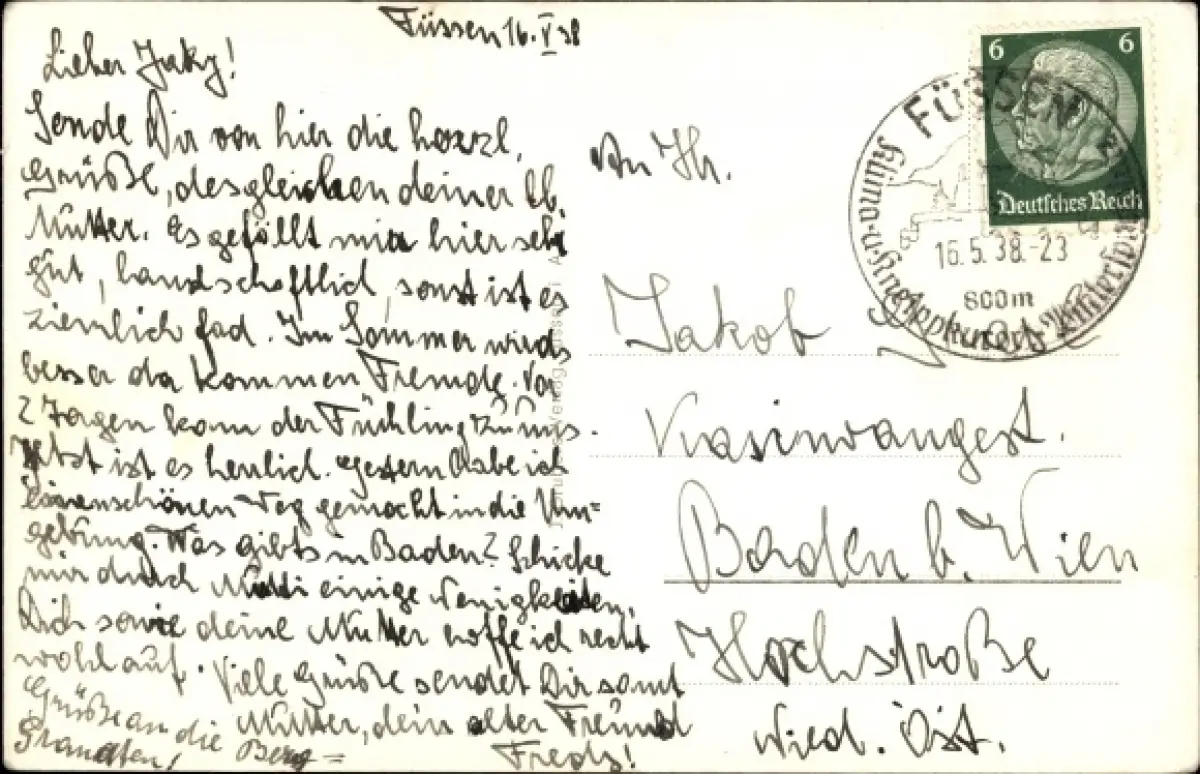 Füssen 16.V 38
Lieber Jaky!
Sende Dir von hier die herzl.
Grüße, desgleichen deiner lb.
Mutter. Es gefällt mir hier sehr
gut, landschaftlich, sonst ist es
ziemlich fad. Im Sommer wirds
besser da kommen Fremde. Vor
2 Tagen kam der Frühling zu uns.
Jetzt ist es herrlich. Gestern habe ich
einen schönen Weg gemacht in die Um=
gebung. Was gibts in Baden? Schicke
mir durch Mutti einige Wenigkeiten.
Dich sowie deine Mutter hoffe ich recht
wohlauf. Viele Grüße sendet Dir samt
Mutter, dein alter Freund
Fredi!
Grüße an die Berg=
An Hr.
Jakob
Baden b. Wien
Hochstraße
Nied. Öst.
6 6
Deutsches Reich
FÜSSEN
16.5.38.-23
800m